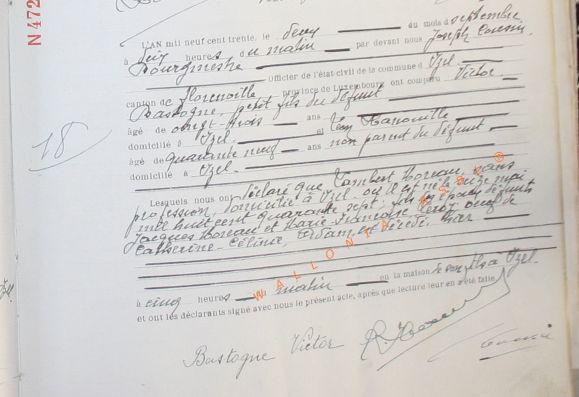 N 472
L'AN mil neuf cent trente, le deux du mois de septembre
à dix heures du matin par devant nous Joseph
Bourgmestre
Officier de l'état civil de la commune d'Izel
canton de Florenville province de Luxembourg ont comparu Victor
Bastogne, petit fils du défunt
âgé de vingt-trois ans
domicilié à Izel et Léon
âgé de quarante neuf ans non parent du défunt
domicilié à Izel.
Lesquels nous ont déclaré que Lambert Moreau, sans
profession, domicilié à Izel où il est né le onze mai
mil huit cent quarante sept, fils des époux défunts
Jacques Moreau et Marie-Françoise veuf de
Catherine-Célinie, est décédé, hier
à cinq heures matin en la maison de son fils à Izel.
et ont les déclarants signé avec nous le présent acte, après que lecture leur en a été faite
Bastogne Victor
18
WALLONIA